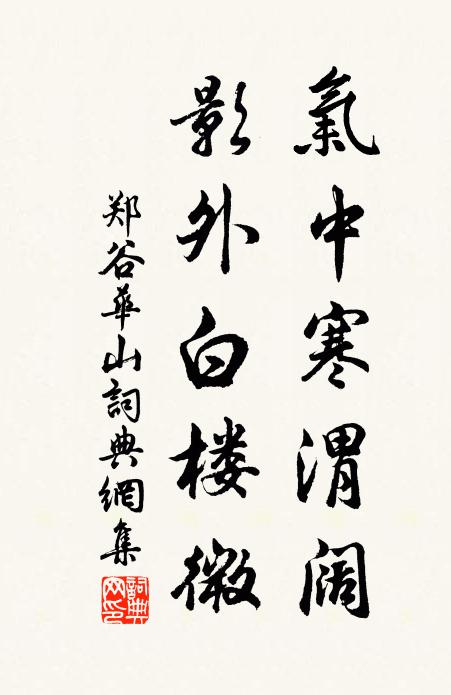 氣中寒渭阔
影外白楼微
郑谷華山詞典網集
詞典網印